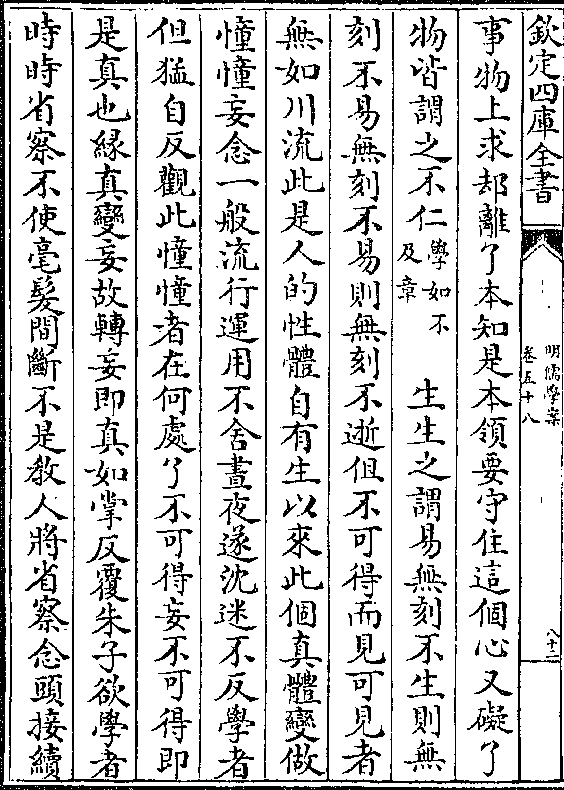 欽定四庫全書
明儒學案
卷五十八
八十二
事物上求却離了本知是本領要守住這個心又礙了
物皆謂之不仁學如不及章 生生之謂易無刻不生則無
刻不易無刻不易則無刻不逝但不可得而見可見者
無如川流此是人的性體自有生以來此個真體變做
憧憧妄念一般流行運用不舍晝夜遂沈迷不反學者
但猛自反觀此憧憧者在何處了不可得妄不可得即
是真也緣真變妄故轉妄即真如掌反覆朱子欲學者
時時省察不使毫髮間斷不是教人將省察念頭接續